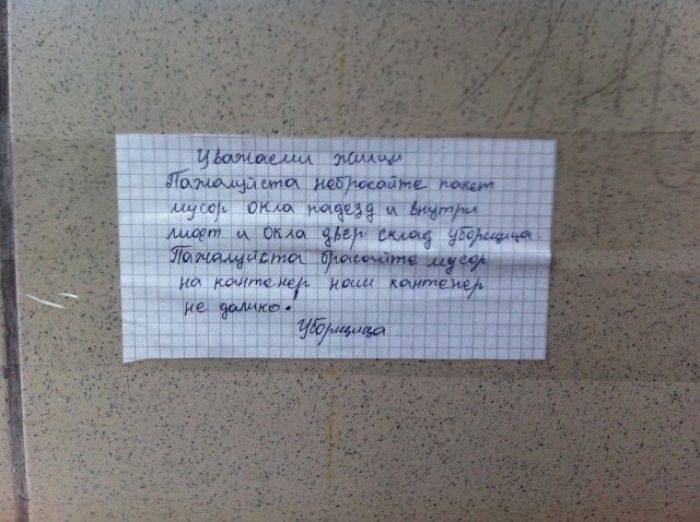 Уважаеми жилци
Пажалуйста небросайте пакет
мусор окла падезд и внутри
лиост и окла двер склад уборщица.
Пажалуйста брасайте мусор
на кантенер наш кантенер
не далико.
Уборщица.